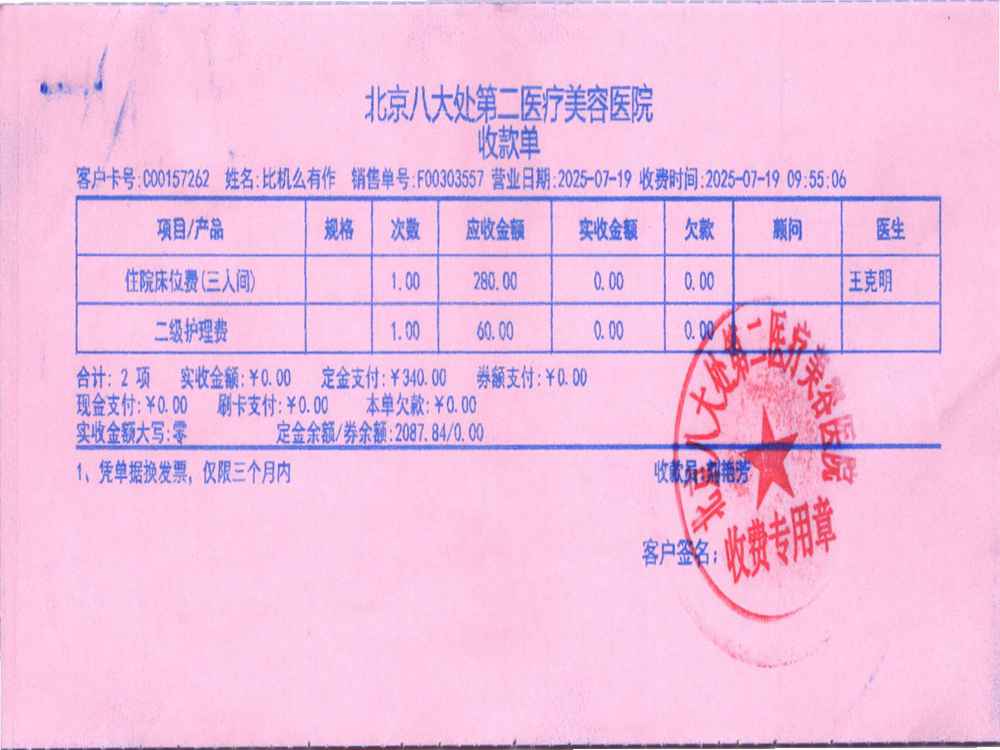 北京八大处第二医疗美容医院
收款单
客户卡号:C00157262 姓名:比机么有作 销售单号:F00303557 营业日期:2025-07-19 收费时间:2025-07-19 09:55:06
项目/产品 规格 次数 应收金额 实收金额 欠款 顾问 医生
住院床位费(三人间) 1.00 280.00 0.00 0.00 王克明
二级护理费 1.00 60.00 0.00 0.00
合计: 2 项 实收金额:¥0.00 定金支付:¥340.00 券额支付:¥0.00
现金支付:¥0.00 刷卡支付:¥0.00 本单欠款:¥0.00
实收金额大写:零 定金余额/券余额:2087.84/0.00
1、凭单据换发票, 仅限三个月内 收款员:
客户签名:
北京八大处第二医疗美容医院
收费专用章